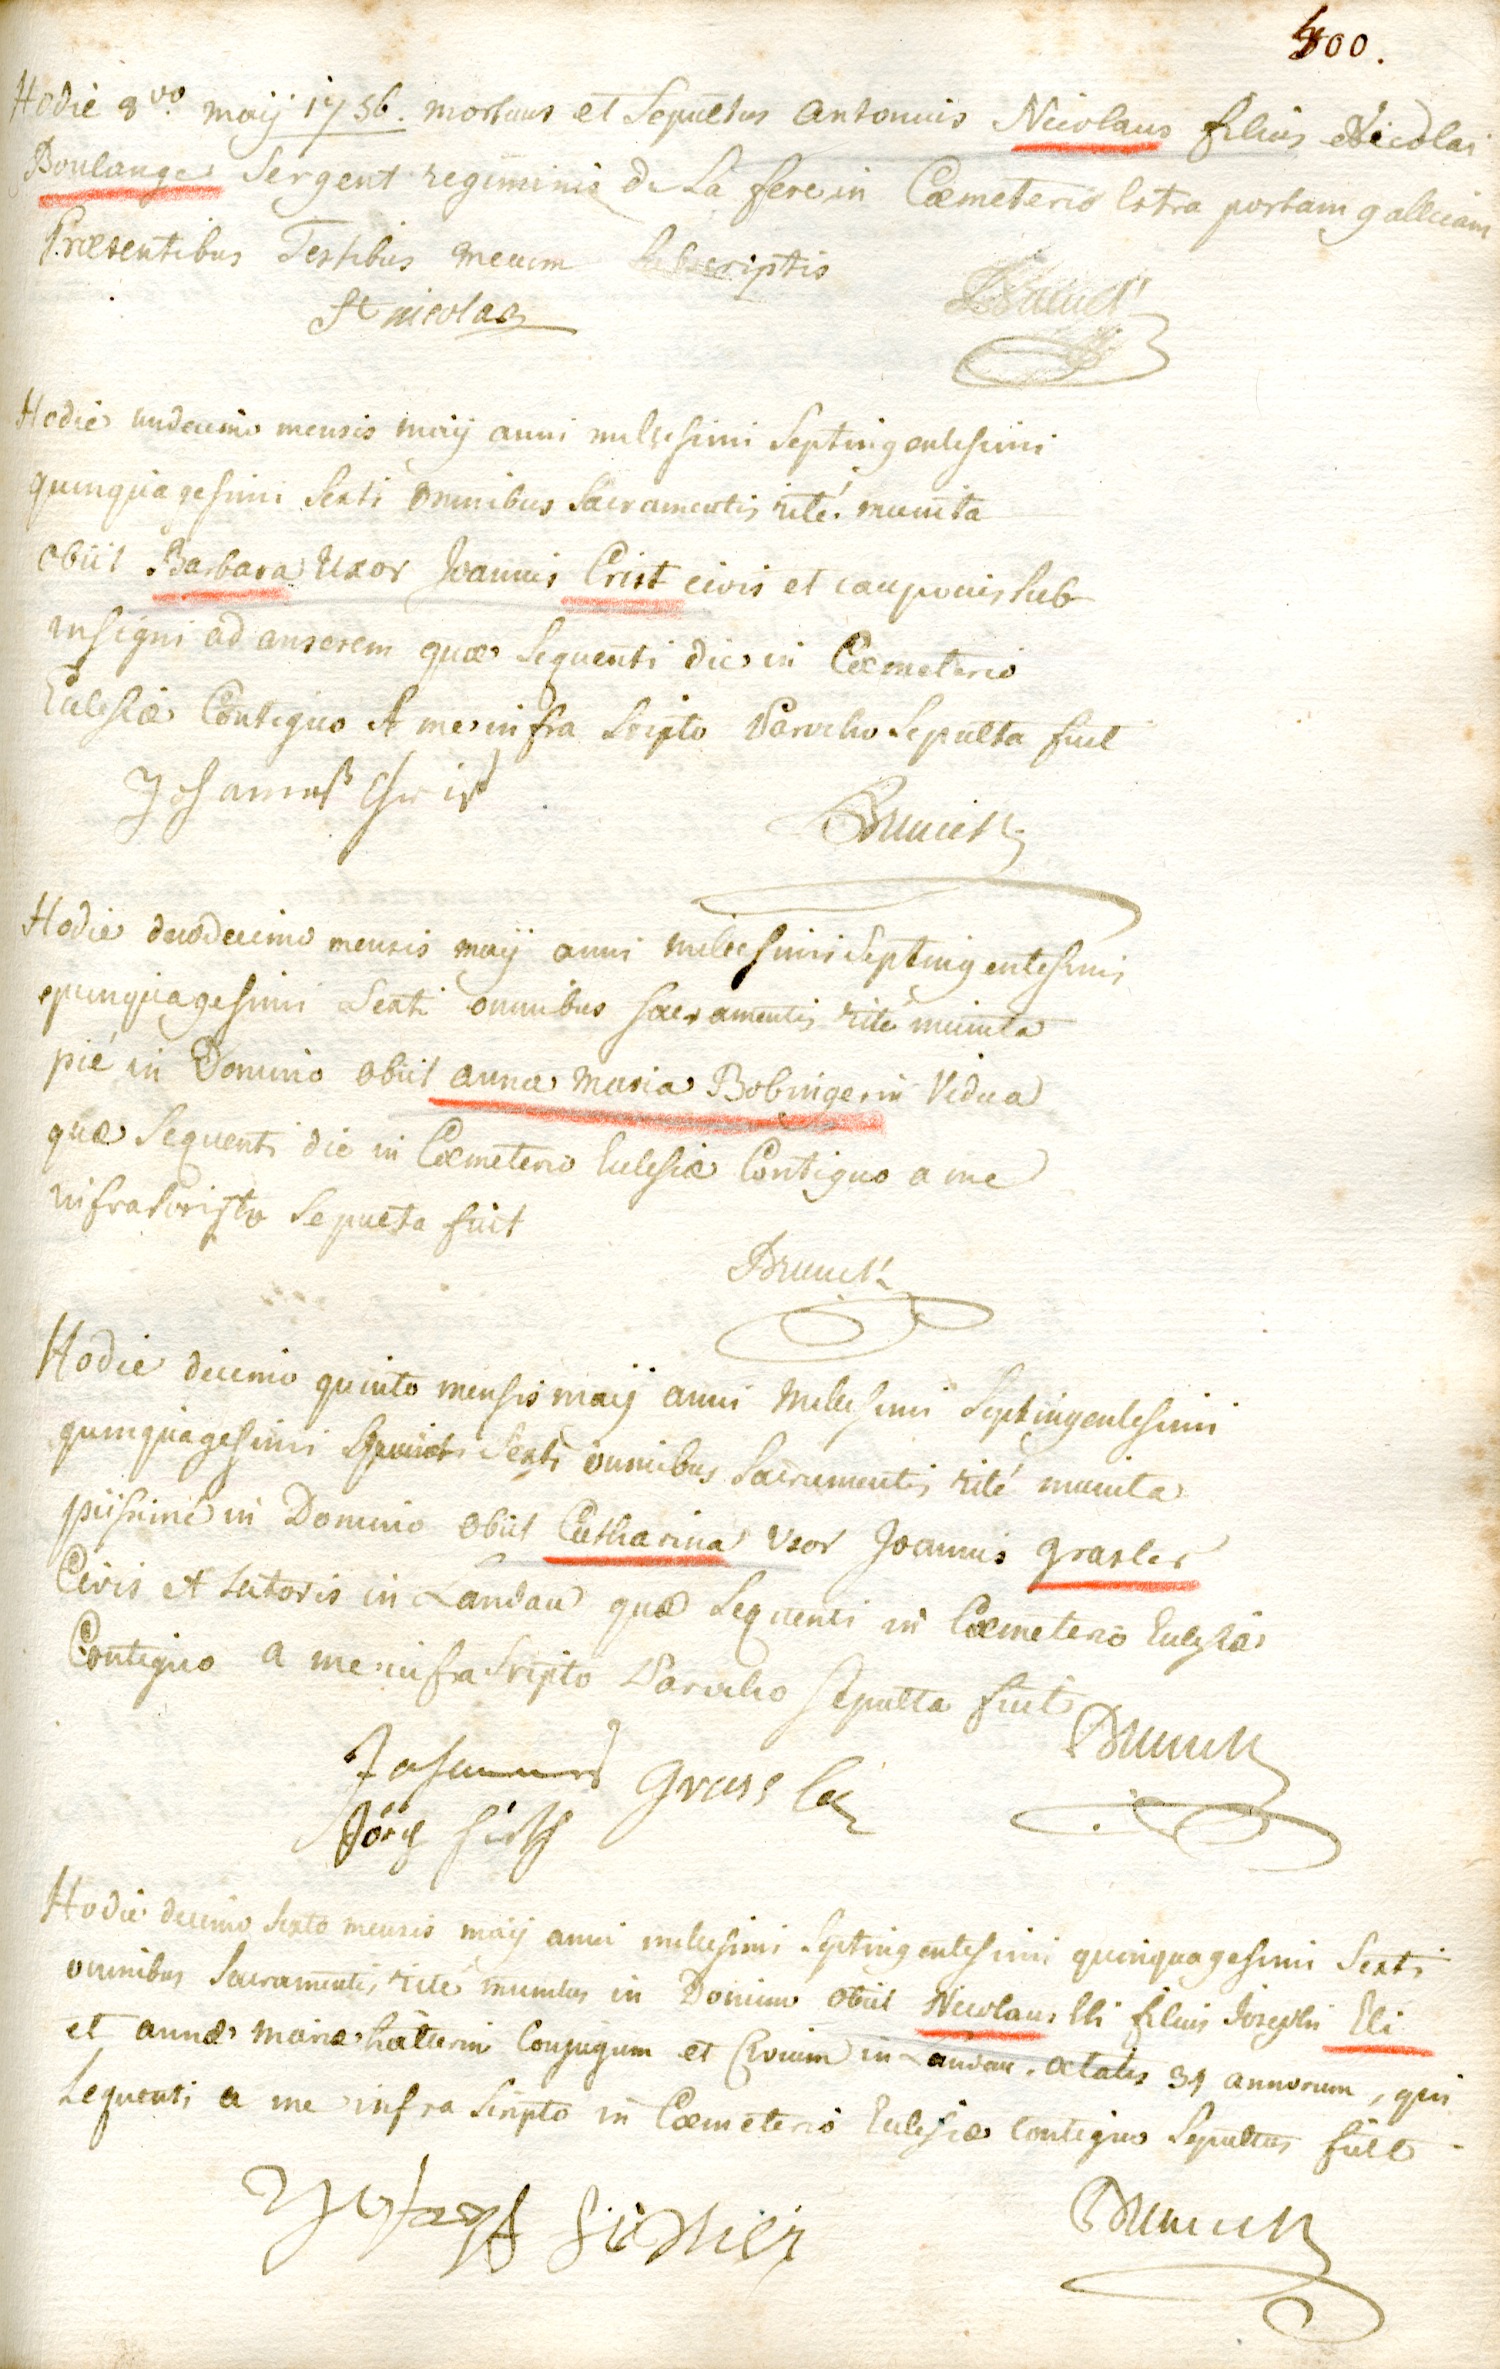 400.
Hodie 8vo maij 1756. mortuus et Sepultus Antonius Nicolaus filius Nicolai
Boulange Sergent regiminis de La fere in Cœmeterio Extra portam gallicam
Præsentibus Testibus mecum Subscriptis
St nicolas
Brunck
Hodie undecimo mensis maij anni millesimi Septingentesimi
quinquagesimi Sexti omnibus Sacramentis rité munita
obiit Barbara Uxor Joannis Crist civis et cauponis sub
insigni ad anserem quæ Sequenti die in Cœmeterio
Eclesiæ Contiguo A me infra Scripto Parocho Sepulta fuit
Johannes Christ
Brunck
Hodie duodecimo mensis maij anni millesimi Septingentesimi
quinquagesimi Sexti omnibus Sacramentis rité munita
pié in Domino obiit anna maria Bobingerin Vidua
quæ Sequenti die in Cœmeterio Eclesiæ Contiguo a me
infrascripto Sepulta fuit
Brunck
Hodie decimo quinto mensis maij anni Millesimi Septingentesimi
quinquagesimi Sexti omnibus Sacramentis rité munita
piissimé in Domino obiit Catharina Uxor Joannis grasler
Civis et sutoris in Landau quæ Sequenti in Cœmeterio Eclesiæ
Contiguo a me infra Scripto Parocho Sepulta fuit
Brunck
Johannes grassler
Jörg
Hodie decimo Sexto mensis maij anni millesimi Septingentesimi quinquagesimi Sexti
omnibus Sacramentis rité munitus in Domino obiit Nicolaus Eli filius Josephi Eli
et annæ mariæ Conjugum et Civium in Landau. ætatis 31 annorum, qui
Sequenti a me infra Scripto in Cœmeterio Eclesiæ contiguo Sepultus fuit
Brunck